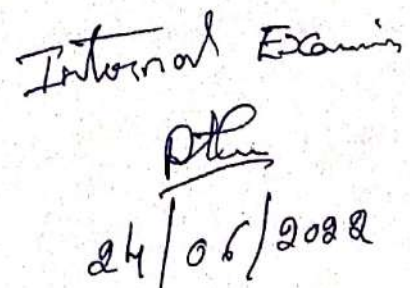 Internal Examin
24/06/2022